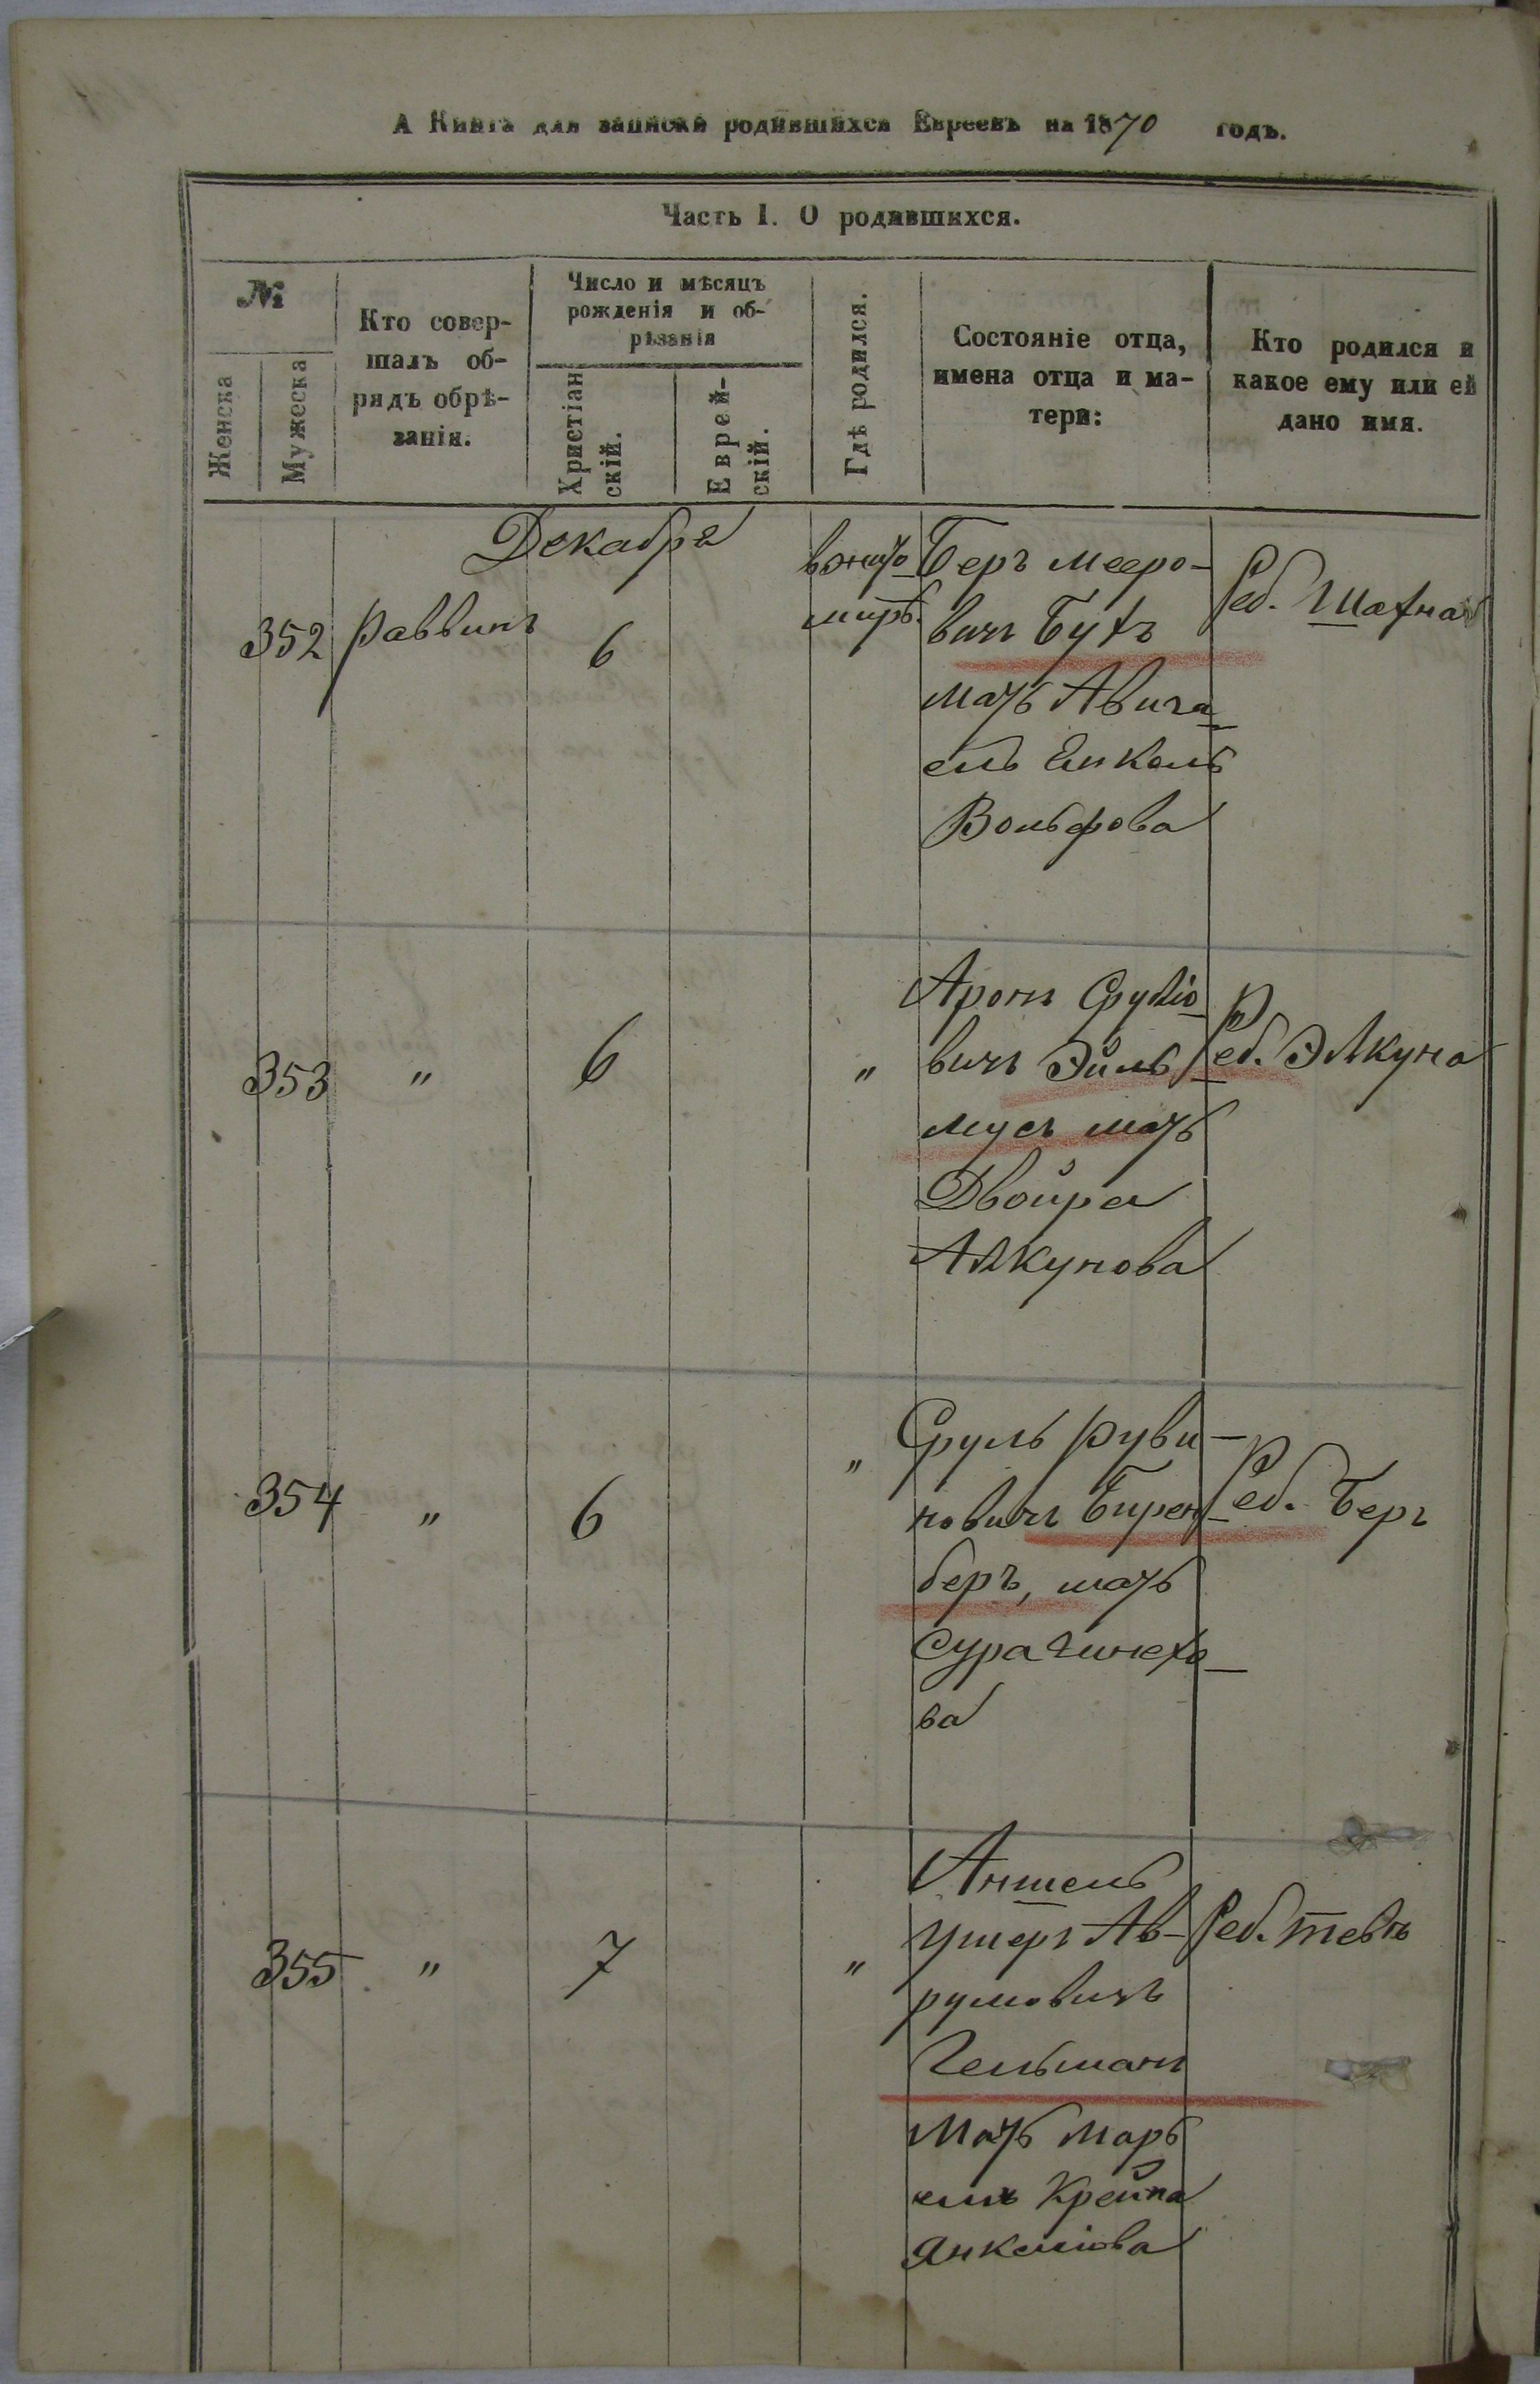 А Книга для записки родившихся Евреевъ на 1870 годъ.
Часть I. О родившихся.
№
Женска
Мужеска
Кто совер-
шалъ об-
рядъ обрѣ-
занія.
Число и мѣсяцъ
рожденія и об-
рѣзанія
Христіан
скій.
Еврей-
скій.
Гдѣ родился.
Состояніе отца,
имена отца и ма-
тери:
Кто родился и
какое ему или ей
дано имя.
Декабря
352
раввинъ
6
вжито
миръ.
Беръ Мееро-
вичъ Бухъ
мать Авига-
ель Енкель
Вольфова
Реб. Шахна
353
"
6
"
Аронъ Срулiо
вичъ Эйль
мусъ мать
Двойра
Алкунова
Реб. Элкуна
354
"
6
"
Сруль Руви-
новичъ Бирен-
беръ, мать
Сура Пинехо-
ва
Реб. Беръ
355
"
7
"
Аншель
Ушеръ Ав-
румовичъ
Гельманъ
Мать Марь
Крейна
Янкеліова
Реб. Тевль